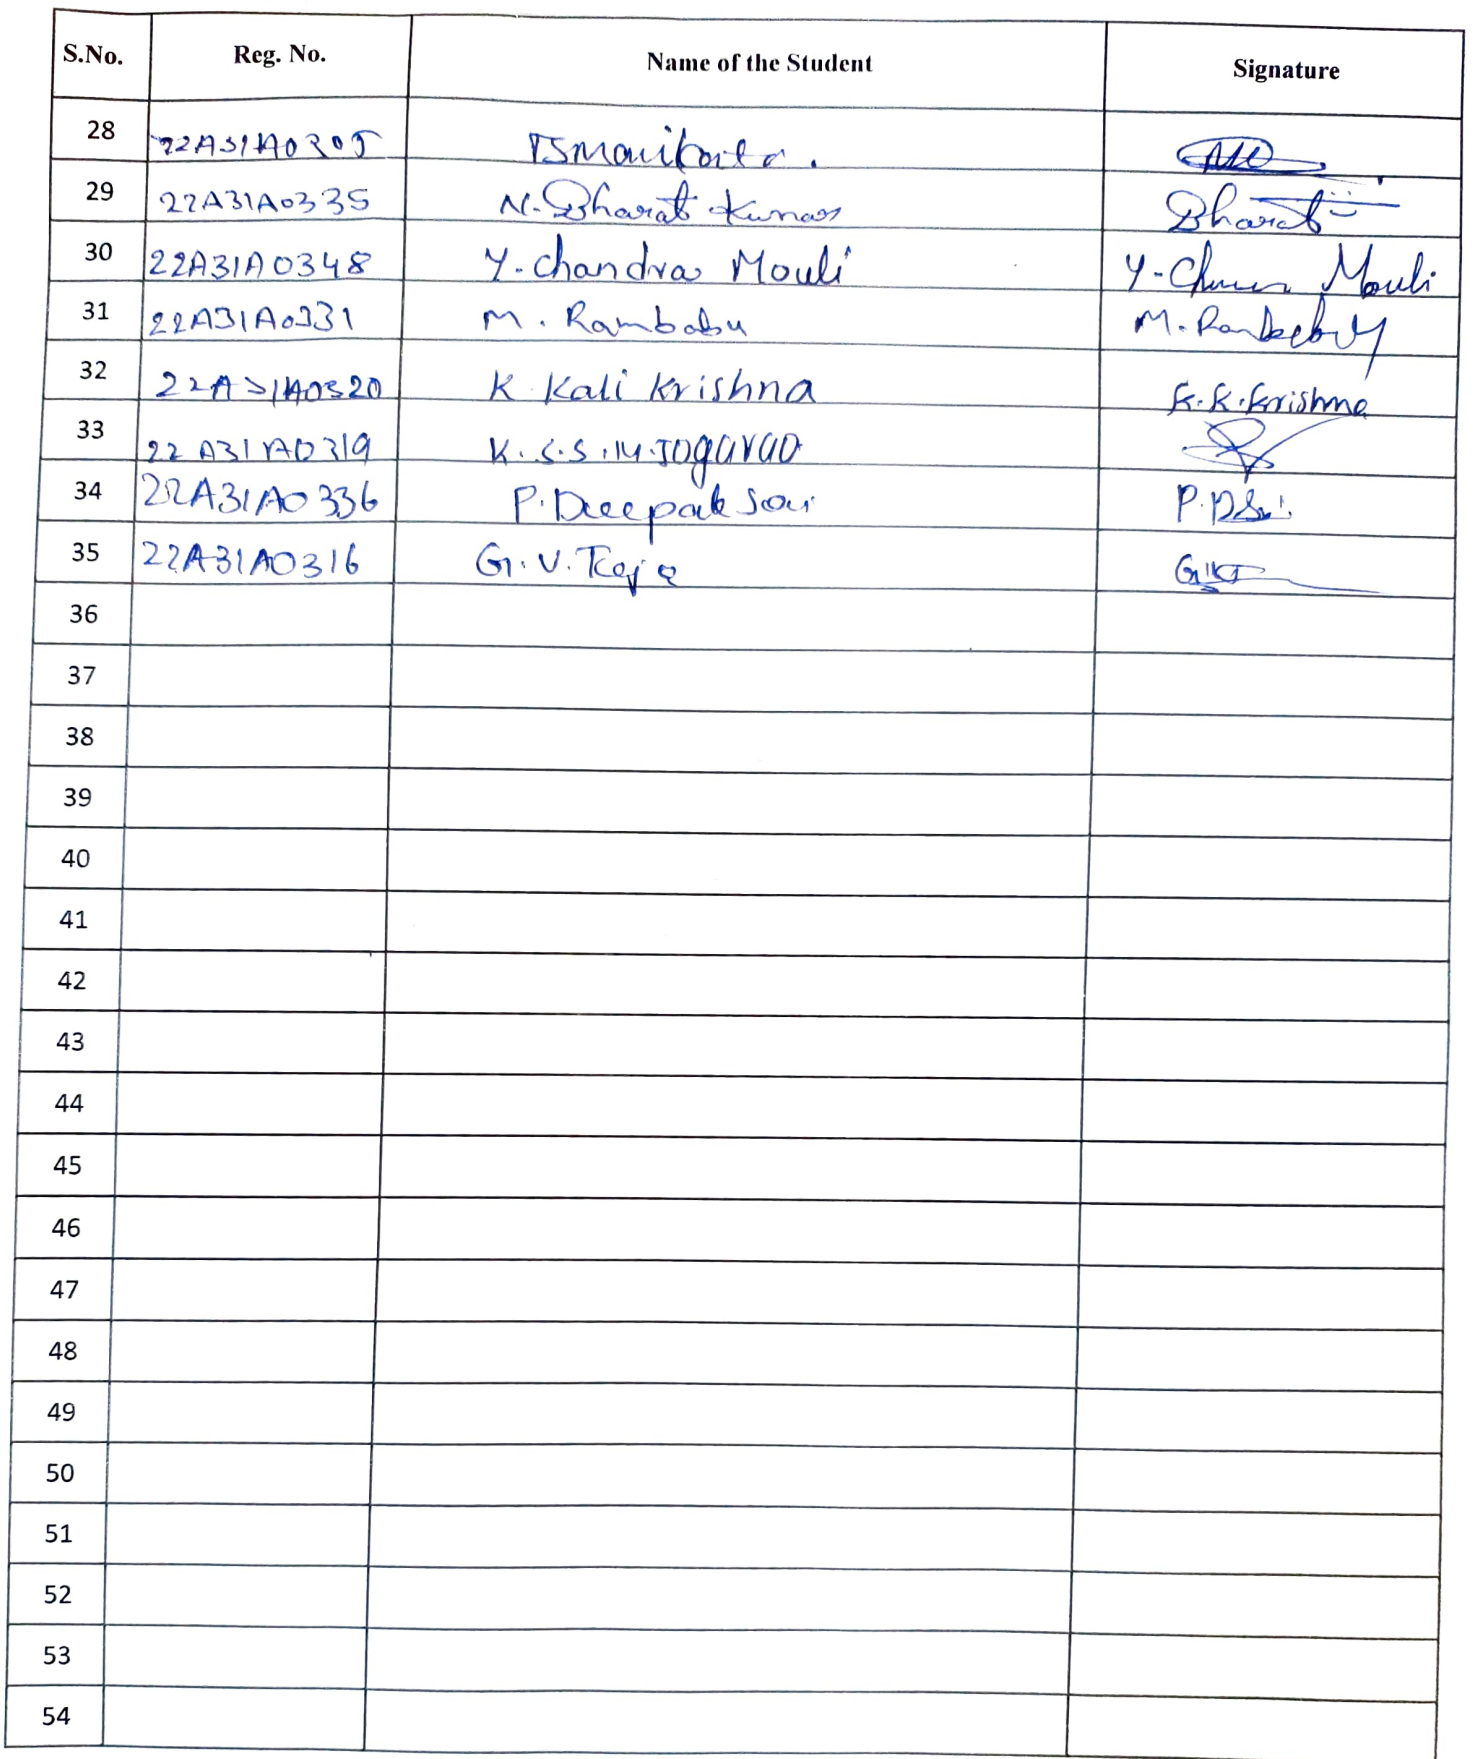 S.No. Reg. No. Name of the Student Signature
28 22A31A0305
29 22A31A0335 N. Bharat Kumar Bharat
30 22A31A0348 Y. Chandra Mouli Y. Mouli
31 22A31A0331 M. Rambabu M. Rambabu
32 22A31A0320 K Kali Krishna K. K. Krishna
33 22A31A0319 K. S. S. M. Jogarao
34 22A31A0336 P. Deepak Sai
35 22A31A0316 G. V. Teja
36
37
38
39
40
41
42
43
44
45
46
47
48
49
50
51
52
53
54